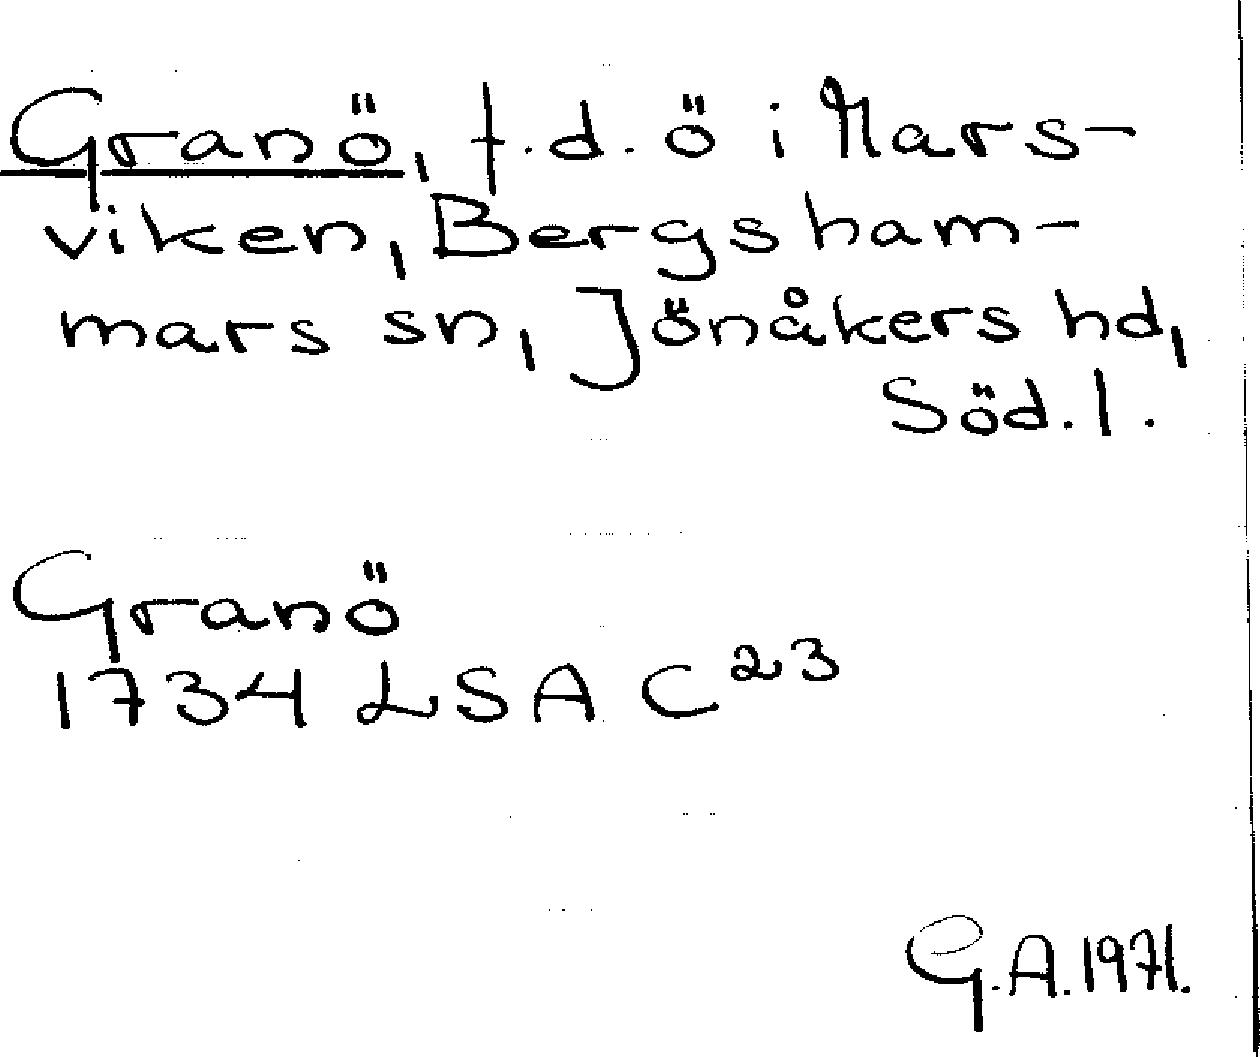 Granö, f.d. ö i Mars-
viken, Bergsham-
mars sn, Jönåkers hd,
Söd. l.
Granö
1734 LSA C 23
G.A. 1971.